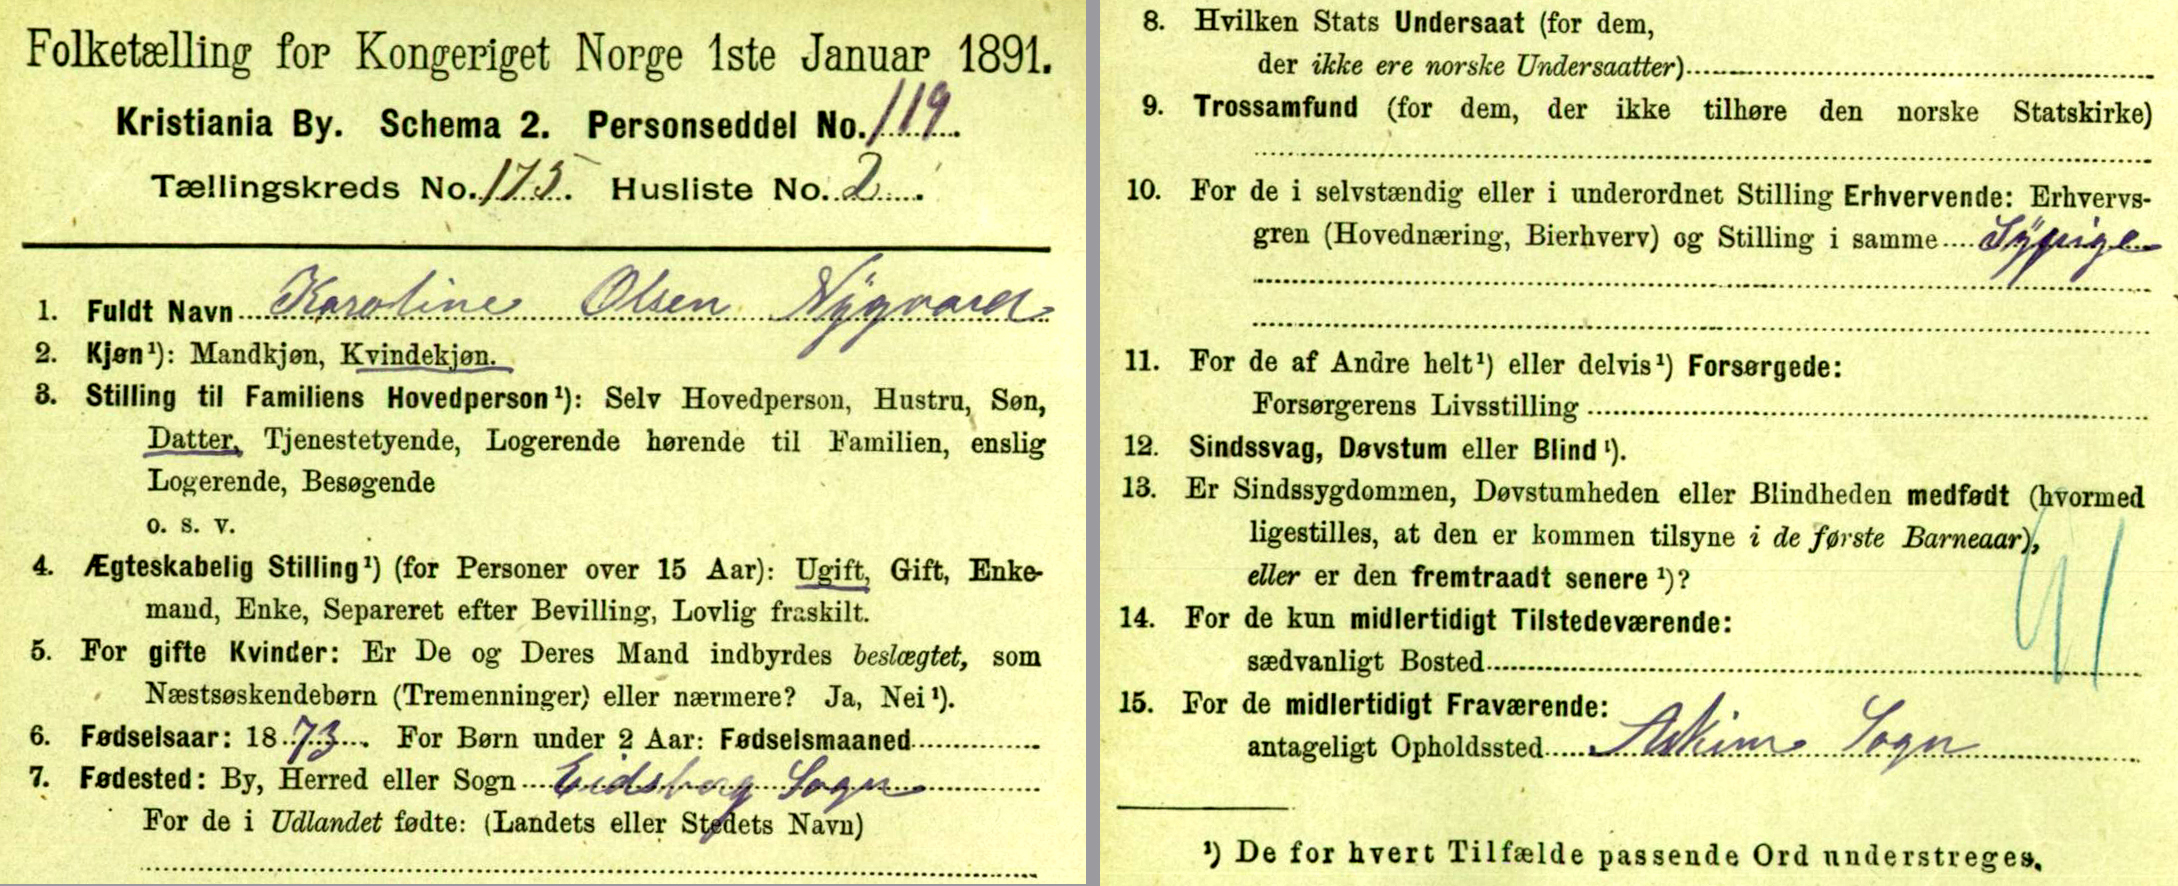 Folketælling for Kongeriget Norge 1ste Januar 1891.
Kristiania By. Schema 2. Personseddel No. 119.
Tællingskreds No. 175. Husliste No. 2.
1. Fuldt Navn Karoline Olsen Nÿgaard
2. Kjøn¹): Mandkjøn, Kvindekjøn.
3. Stilling til Familiens Hovedperson¹): Selv Hovedperson, Hustru, Søn,
Datter, Tjenestetyende, Logerende hørende til Familien, enslig
Logerende, Besøgende
o. s. v.
4. Ægteskabelig Stilling¹) (for Personer over 15 Aar): Ugift, Gift, Enke-
mand, Enke, Separeret efter Bevilling, Lovlig fraskilt.
5. For gifte Kvinder: Er De og Deres Mand indbyrdes beslægtet, som
Næstsøskendebørn (Tremenninger) eller nærmere? Ja, Nei¹).
6. Fødselsaar: 1873. For Børn under 2 Aar: Fødselsmaaned
7. Fødested: By, Herred eller Sogn Eidsberg Sogn
For de i Udlandet fødte: (Landets eller Stedets Navn)
8. Hvilken Stats Undersaat (for dem,
der ikke ere norske Undersaatter)
9. Trossamfund (for dem, der ikke tilhøre den norske Statskirke)
10. For de i selvstændig eller i underordnet Stilling Erhvervende: Erhvervs-
gren (Hovednæring, Bierhverv) og Stilling i samme Sÿpige
11. For de af Andre helt¹) eller delvis¹) Forsørgede:
Forsørgerens Livsstilling
12. Sindssvag, Døvstum eller Blind¹).
13. Er Sindssygdommen, Døvstumheden eller Blindheden medfødt (hvormed
ligestilles, at den er kommen tilsyne i de første Barneaar),
eller er den fremtraadt senere¹)?
14. For de kun midlertidigt Tilstedeværende:
sædvanligt Bosted
15. For de midlertidigt Fraværende:
antageligt Opholdssted Askim Sogn
¹) De for hvert Tilfælde passende Ord understreges.